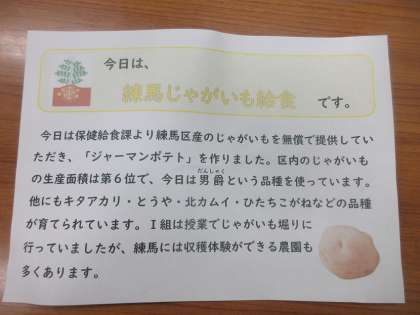 今日は、
練馬じゃがいも給食 です。
今日は保健給食課より練馬区産のじゃがいもを無償で提供してい
ただき、「ジャーマンポテト」を作りました。区内のじゃがいも
の生産面積は第６位で、今日は男爵という品種を使っています。
だんしゃく
他にもキタアカリ・とうや・北カムイ・ひたちこがねなどの品種
が育てられています。Ｉ組は授業でじゃがいも堀りに
行っていましたが、練馬には収穫体験ができる農園も
多くあります。